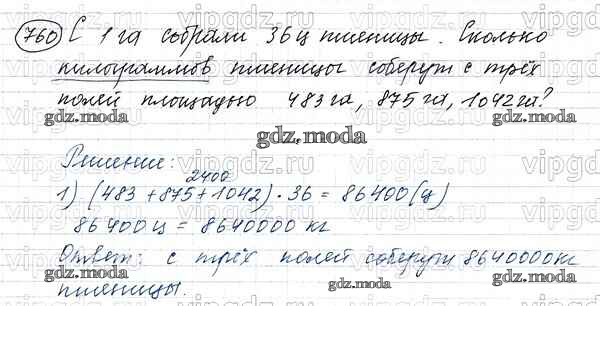 760 С 1 га собрали 36 ц пшеницы. Сколько
килограммов пшеницы соберут с трёх
полей площадью 483 га, 875 га, 1042 га?
gdz.moda
Решение:
2400
1) (483 + 875 + 1042) · 36 = 86400 (ц)
86400 ц = 8640000 кг
Ответ: с трёх полей соберут 8640000 кг
пшеницы.
gdz.moda
gdz.moda
gdz.moda